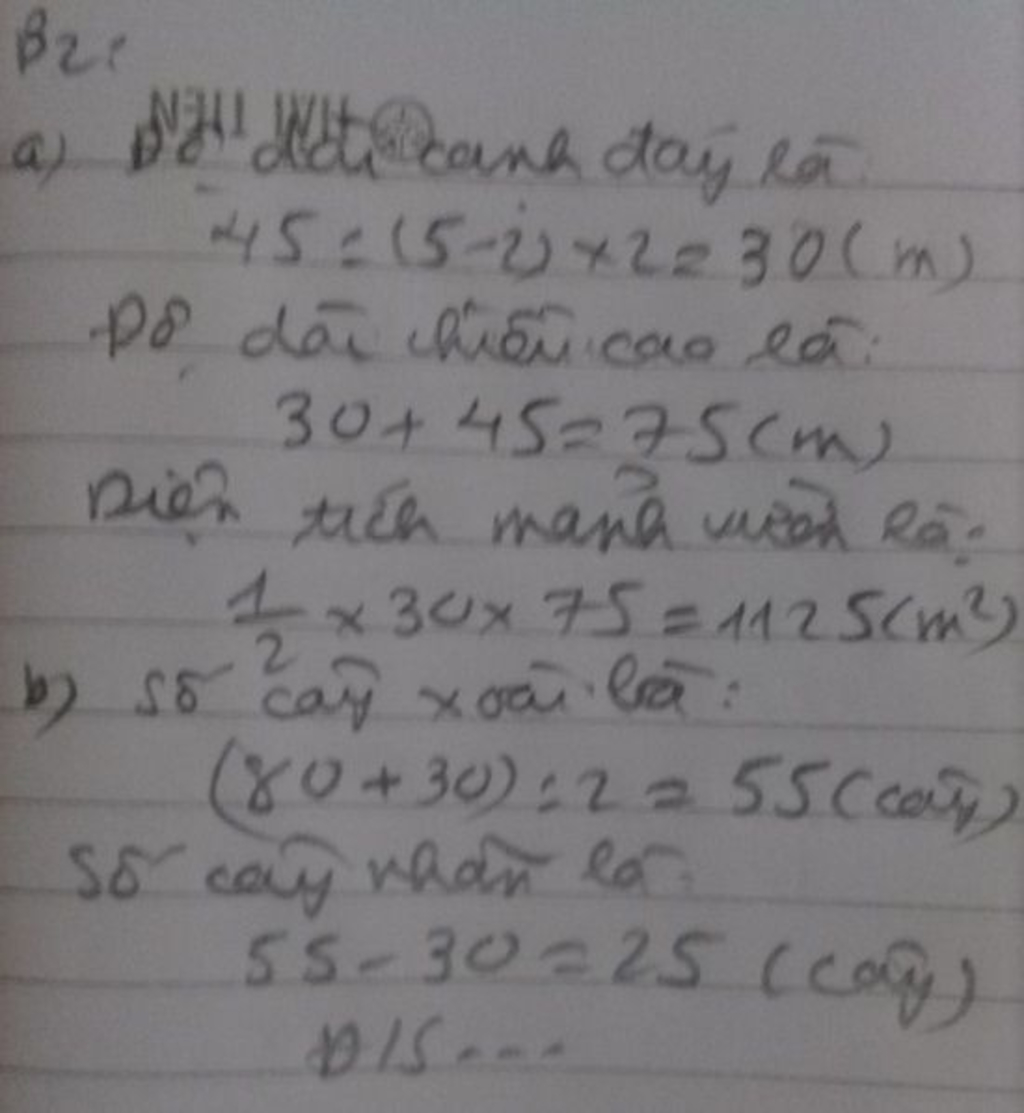 B2:
a) Độ dài cạnh đáy là
45 : (5-2) x 2 = 30 (m)
Độ dài chiều cao là:
30 + 45 = 75 (m)
Diện tích mảnh vườn là:
1/2 x 30 x 75 = 1125 (m²)
b) Số cây xoài là:
(80 + 30) : 2 = 55 (cây)
Số cây nhãn là:
55 - 30 = 25 (cây)
Đ/S ...